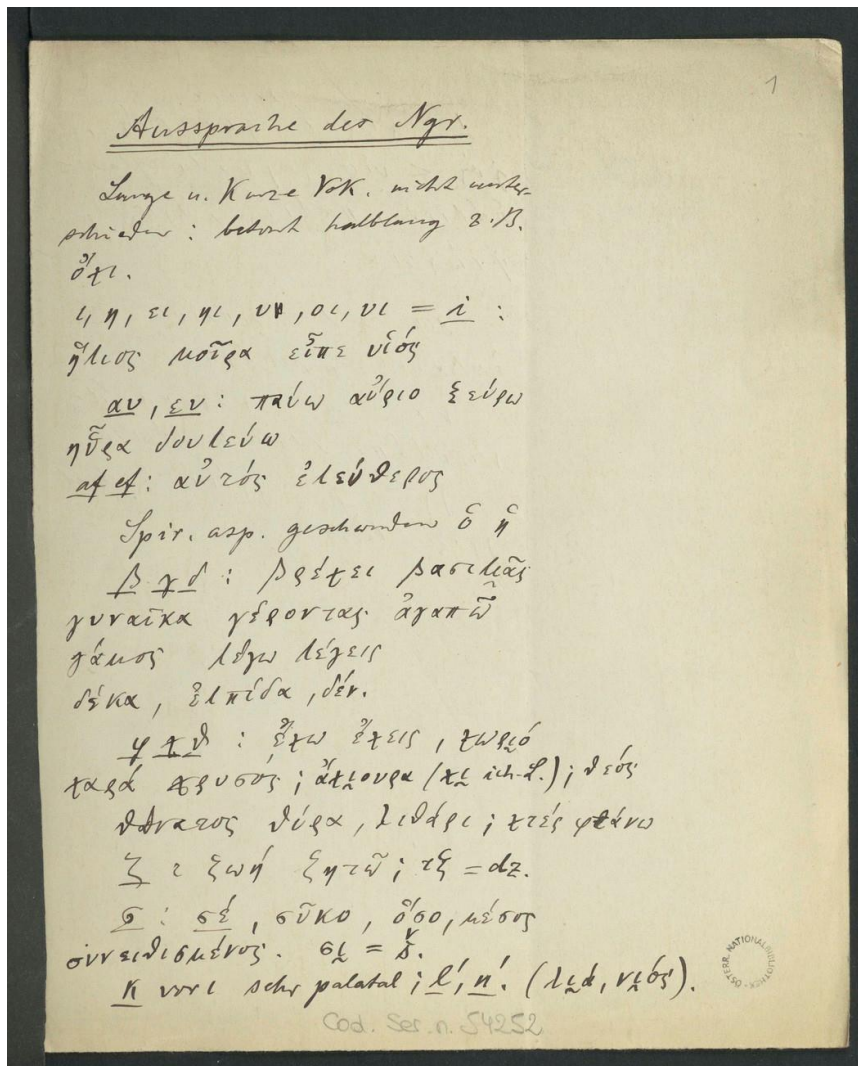 1
Aussprache des Ngr.
Lange u. Kurze Vok. nicht unter-
schieden : betont halblang z. B.
ὄχι.
ι, η, ει, ῃ, υ, οι, υι = i :
ἥλιος μοῖρα εἶπε υἱός
αυ, ευ : παύω αὔριο ξεύρω
ηὗρα δουλεύω
af ef : αὐτός ἐλεύθερος
Spir. asp. geschwunden ὁ ἡ
β γ δ : βρέχει βασιλιᾶς
γυναῖκα γέροντας ἀγαπῶ
γάμος λέγω λέγεις
δέκα, ἐλπίδα, δέν.
φ χ θ : ἔχω ἔχεις, χωριό
χαρά χρυσός ; ἄχιουρα (χι ich-L.) ; θεός
θάνατος θύρα, λιθάρι ; χτές φτάνω
ζ : ζωή ζητῶ ; τζ = dz.
σ : σέ, σῦκο, ὅσο, μέσος
συνειθισμένος. σι = š.
κ vor ι sehr palatal ; l', n'. (λιά, νιός).
Cod. Ser. n. 54252
ÖSTERR. NATIONALBIBLIOTHEK